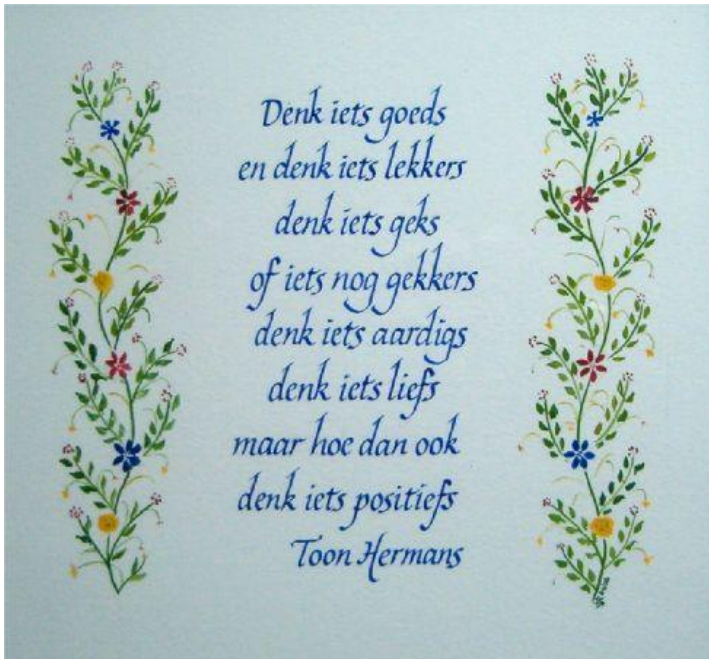 Denk iets goeds
en denk iets lekkers
denk iets geks
of iets nog gekkers
denk iets aardigs
denk iets liefs
maar hoe dan ook
denk iets positiefs
Toon Hermans